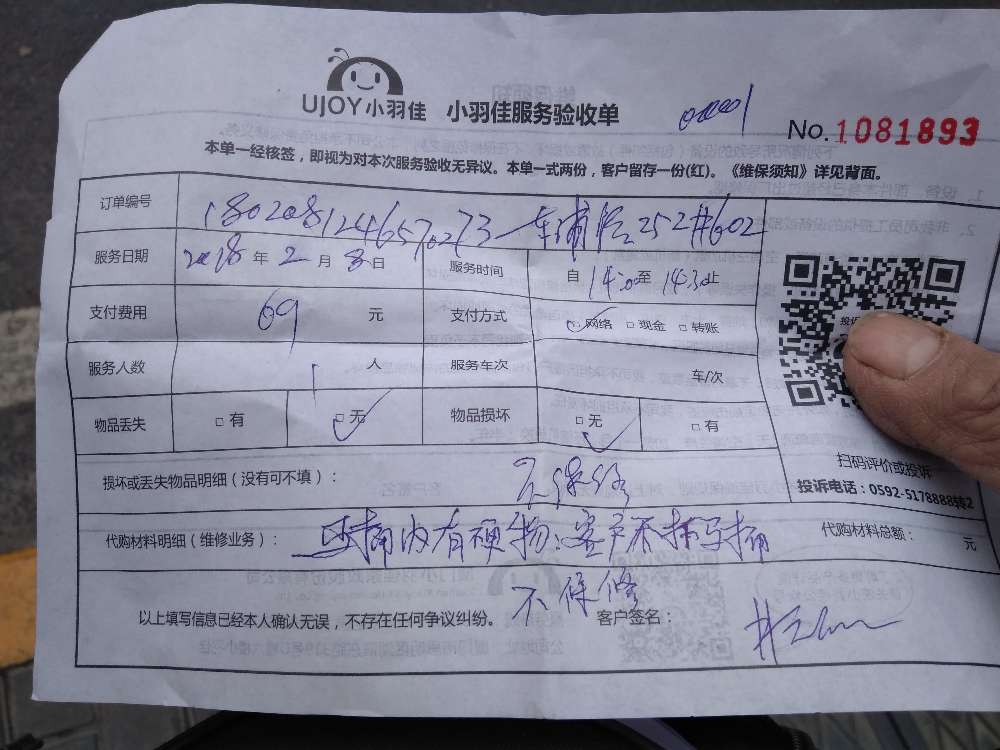 UJOY小羽佳 小羽佳服务验收单
No.1081893
本单一经核签，即视为对本次服务验收无异议。本单一式两份，客户留存一份(红)。《维保须知》详见背面。
订单编号 180208124657273 252#602
服务日期 2018年2月8日 服务时间 自14:00至14:30止
支付费用 69元 支付方式 □网络 □现金 □转账
服务人数 1人 服务车次 车/次
物品丢失 □有 □无 物品损坏 □无 □有
扫码评价或投诉
投诉电话：0592-5178888转2
损坏或丢失物品明细（没有可不填）： 无保修
代购材料明细（维修业务）： 马桶内有硬物，客户不拆马桶 代购材料总额： 元
不保修
以上填写信息已经本人确认无误，不存在任何争议纠纷。 客户签名：